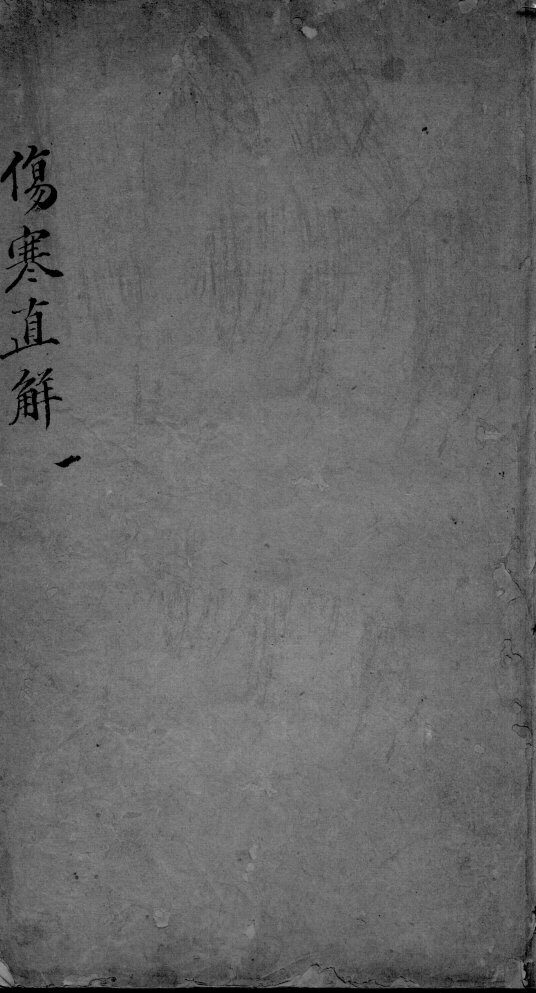 傷寒直解 一